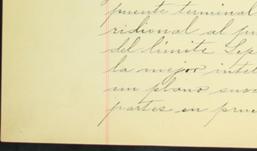 puente terminal
ridional al pu
del límite Sep
la mejor intel
un plano susc
partes en prue